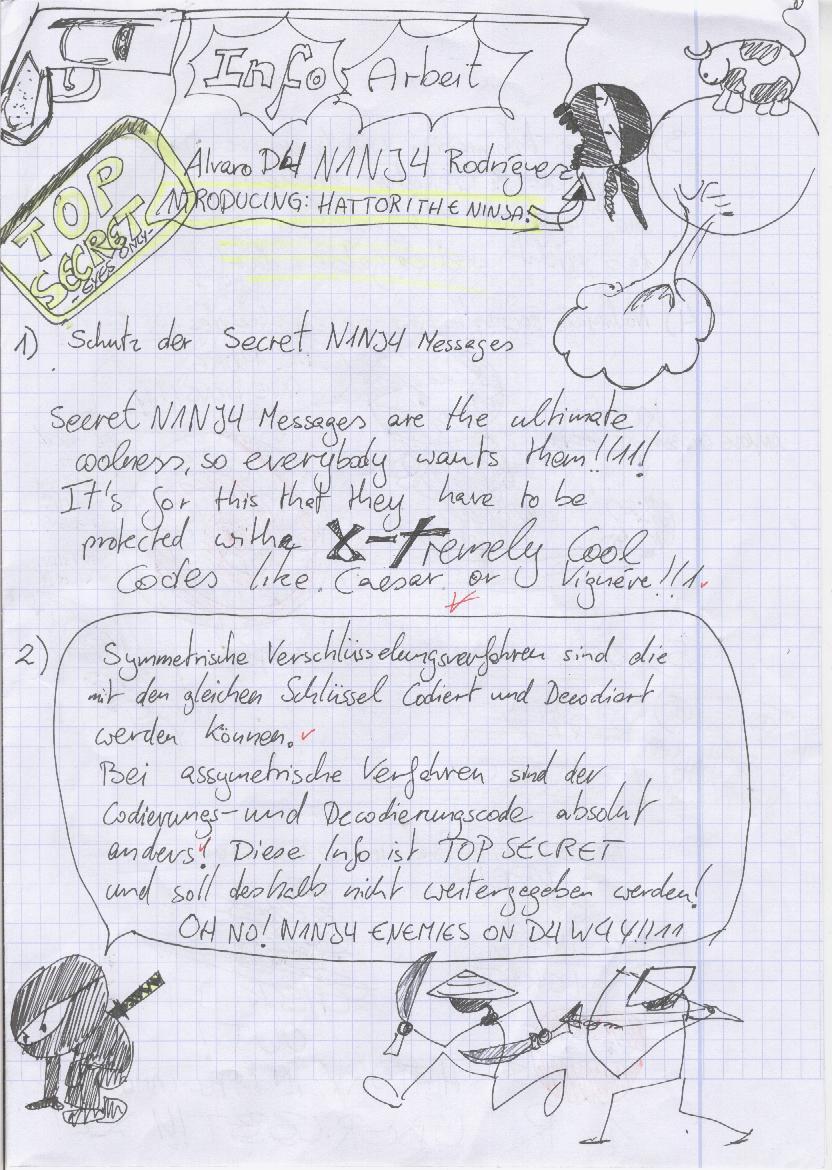 Info Arbeit
Alvaro D4 N1NJ4 Rodríguez
INTRODUCING: HATTORI THE NINJA!
TOP
SECRET
-EYES ONLY-
1) Schutz der Secret N1NJ4 Messages
Secret N1NJ4 Messages are the ultimate
coolness, so everybody wants them!!11!
It's for this that they have to be
protected with a X-tremely Cool
Codes like Caesar or Vignére!!1
2) Symmetrische Verschlüsselungsverfahren sind die
mit den gleichen Schlüssel Codiert und Decodiert
werden können.
Bei assymetrische Verfahren sind der
Codierungs- und Decodierungscode absolut
anders! Diese Info ist TOP SECRET
und soll deshalb nicht weitergegeben werden!
OH NO! N1NJ4 ENEMIES ON D4 W4Y!!11